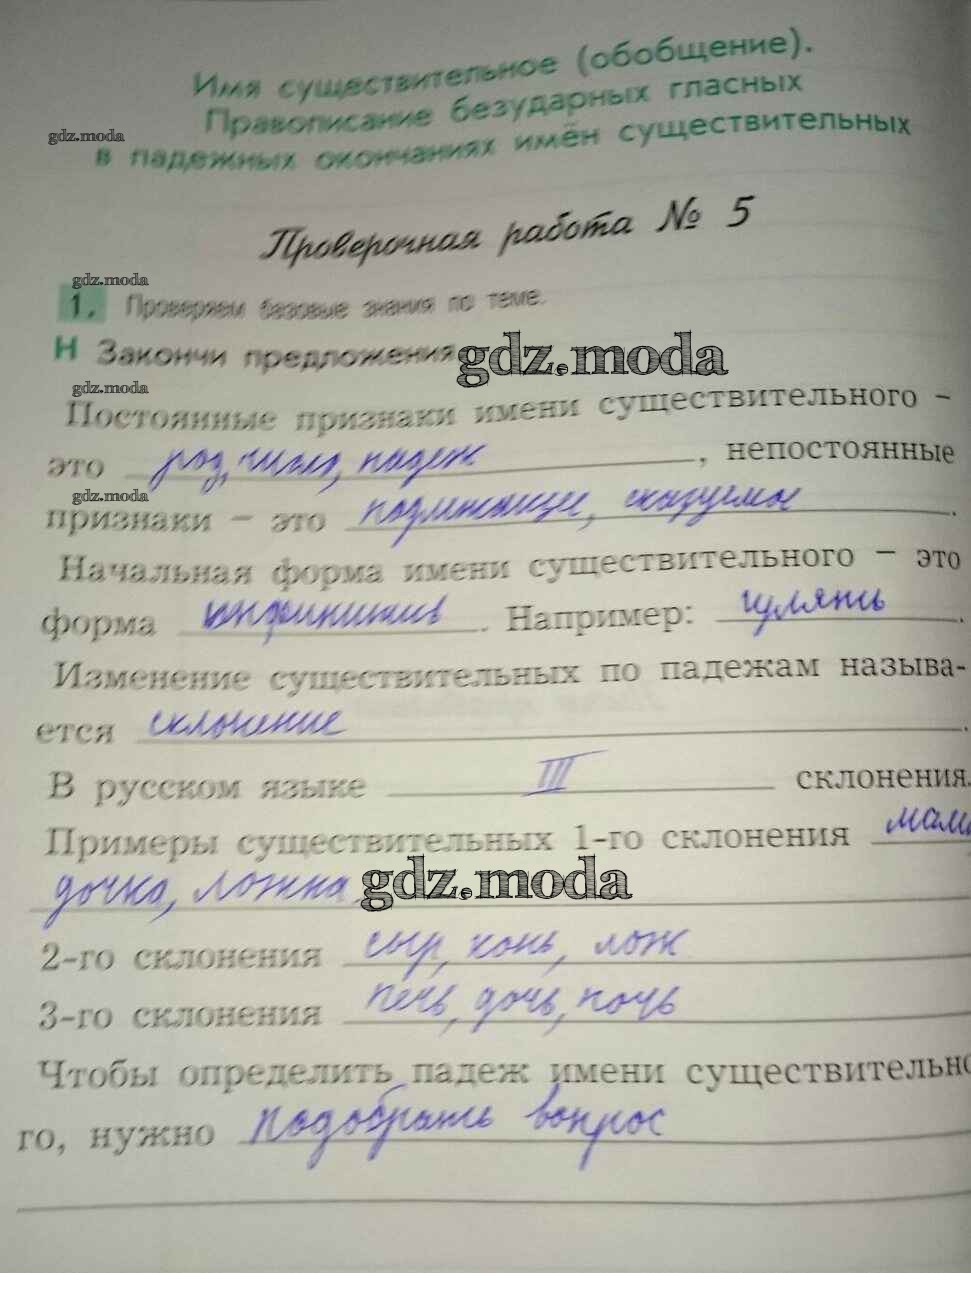 Имя существительное (обобщение).
Правописание безударных гласных
gdz.moda
в падежных окончаниях имён существительных
Проверочная работа № 5
gdz.moda
1. Проверяем базовые знания по теме.
Н Закончи предложения
gdz.moda
gdz.moda
Постоянные признаки имени существительного –
это род, число, падеж, непостоянные
gdz.moda
признаки – это подлежащие, сказуемое.
Начальная форма имени существительного – это
форма инфинитив. Например: гулять.
Изменение существительных по падежам называ-
ется склонение.
В русском языке III склонения.
Примеры существительных 1-го склонения мама
дочка, ложка
gdz.moda
2-го склонения сыр, конь, лож
3-го склонения печь, дочь, ночь
Чтобы определить падеж имени существительно
го, нужно подобрать вопрос